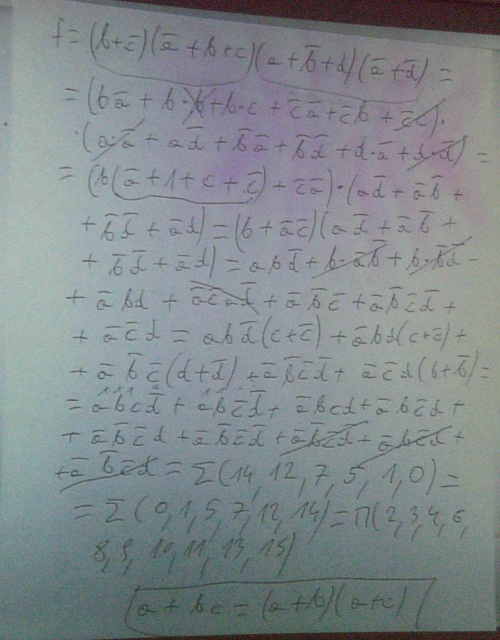 f = (b+c̄)(ā+b+c)(a+b̄+d)(ā+d̄) =
= (bā + b·b + b·c + c̄ā + c̄b + c̄c)·
·(a·ā + ad̄ + b̄ā + b̄d̄ + d·ā + d·d̄) =
= (b(ā+1+c+c̄) + c̄ā)·(ad̄ + āb̄ +
+ b̄d̄ + ād) = (b + āc̄)(ad̄ + āb̄ +
+ b̄d̄ + ād) = abd̄ + b·āb̄ + b·b̄d̄ +
+ ābd + āc̄ad̄ + āb̄c̄ + āb̄c̄d̄ +
+ āc̄d = abd̄(c+c̄) + ābd(c+c̄) +
+ āb̄c̄(d+d̄) + āb̄c̄d̄ + āc̄d(b+b̄) =
= abcd̄ + abc̄d̄ + ābcd + ābc̄d +
+ āb̄c̄d + āb̄c̄d̄ + āb̄c̄d̄ + ābc̄d +
+ āb̄c̄d = Σ(14, 12, 7, 5, 1, 0) =
= Σ(0, 1, 5, 7, 12, 14) = Π(2, 3, 4, 6,
8, 9, 10, 11, 13, 15)
a + bc = (a+b)(a+c)